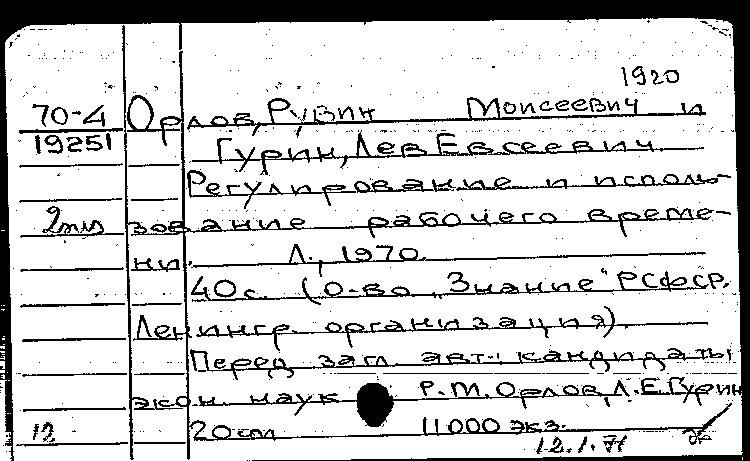 1920
70-4 Орлов, Рувин Моисеевич и
19251 Гурин, Лев Евсеевич.
Регулирование и исполь-
2 зование рабочего време-
ни. Л., 1970.
40с. (О-во „Знание" РСФСР.
Ленингр. организация).
Перед загл. авт.: кандидаты
экон. наук Р.М.Орлов, Л.Е.Гурин
12 20см 11000 экз.
12.1.71